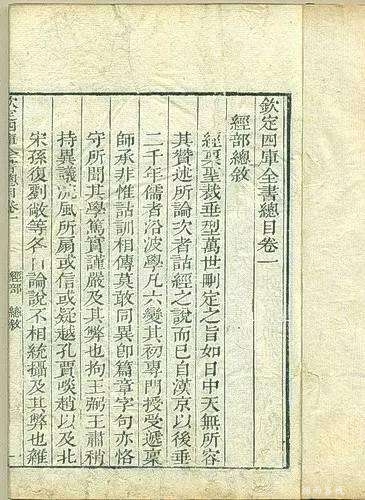 欽定四庫全書總目卷一
經部總敘
經稟聖裁垂型萬世刪定之旨如日中天無所容
其贊述所論次者詁經之說而已自漢京以後垂
二千年儒者沿波學凡六變其初專門授受遞稟
師承非惟詁訓相傳莫敢同異卽篇章字句亦恪
守所聞其學篤實謹嚴及其弊也拘王弼王肅稍
持異議流風所扇或信或疑越孔賈啖趙以及北
宋孫復劉敞等各自論說不相統攝及其弊也雜
經部 總敘